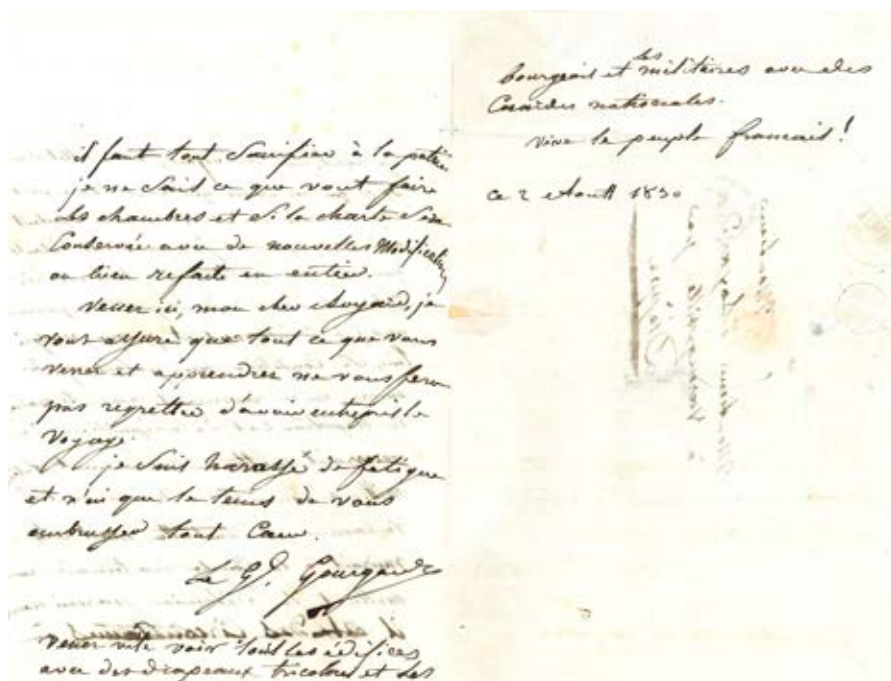 il faut tout sacrifier à la patrie
je ne sais ce que vont faire
les chambres et si la charte sera
conservée avec de nouvelles modifications
ou bien refaite en entier.
venez ici, mon cher je
vous assure que tout ce que vous
verrez et apprendrez ne vous fera
pas regretter d'avoir entrepris le
voyage.
je suis harassé de fatigue
et n'ai que le tems de vous
embrasser tout Coeur.
Le Gl. Gourgaud
venez vite voir tous les édifices
avec des drapeaux tricolores et les
bourgeois et les militaires avec des
Cocardes nationales.
vive le peuple francais!
ce 2 Aoutt 1830